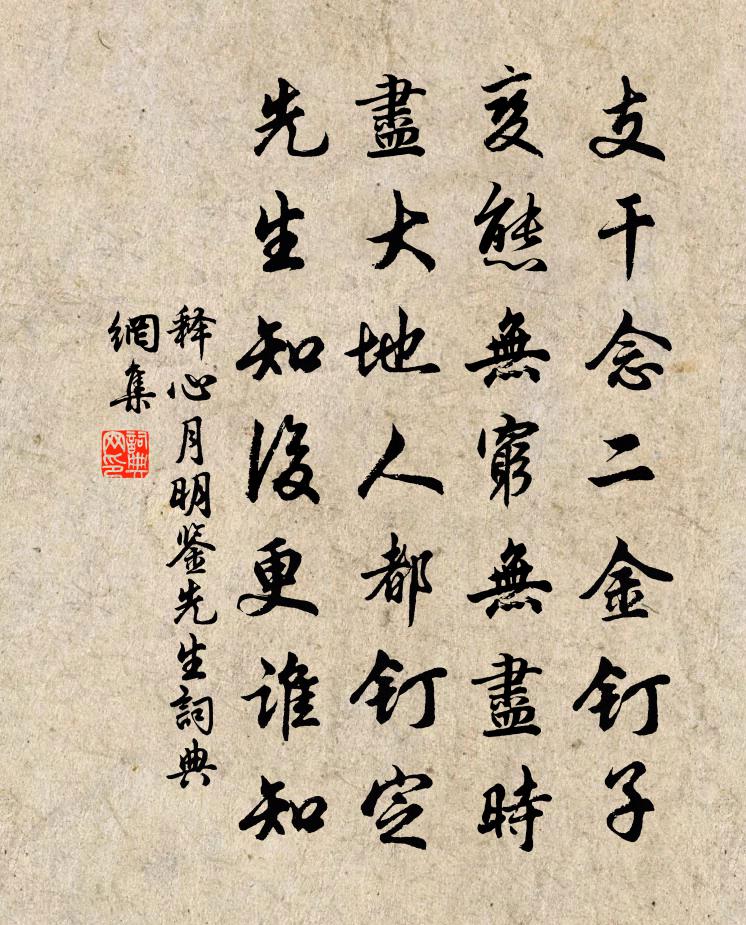 支干念二金钉子
变態無窮無盡時
盡大地人都钉定
先生知後更誰知
释心月明鉴先生詞典
網集
詞典网印